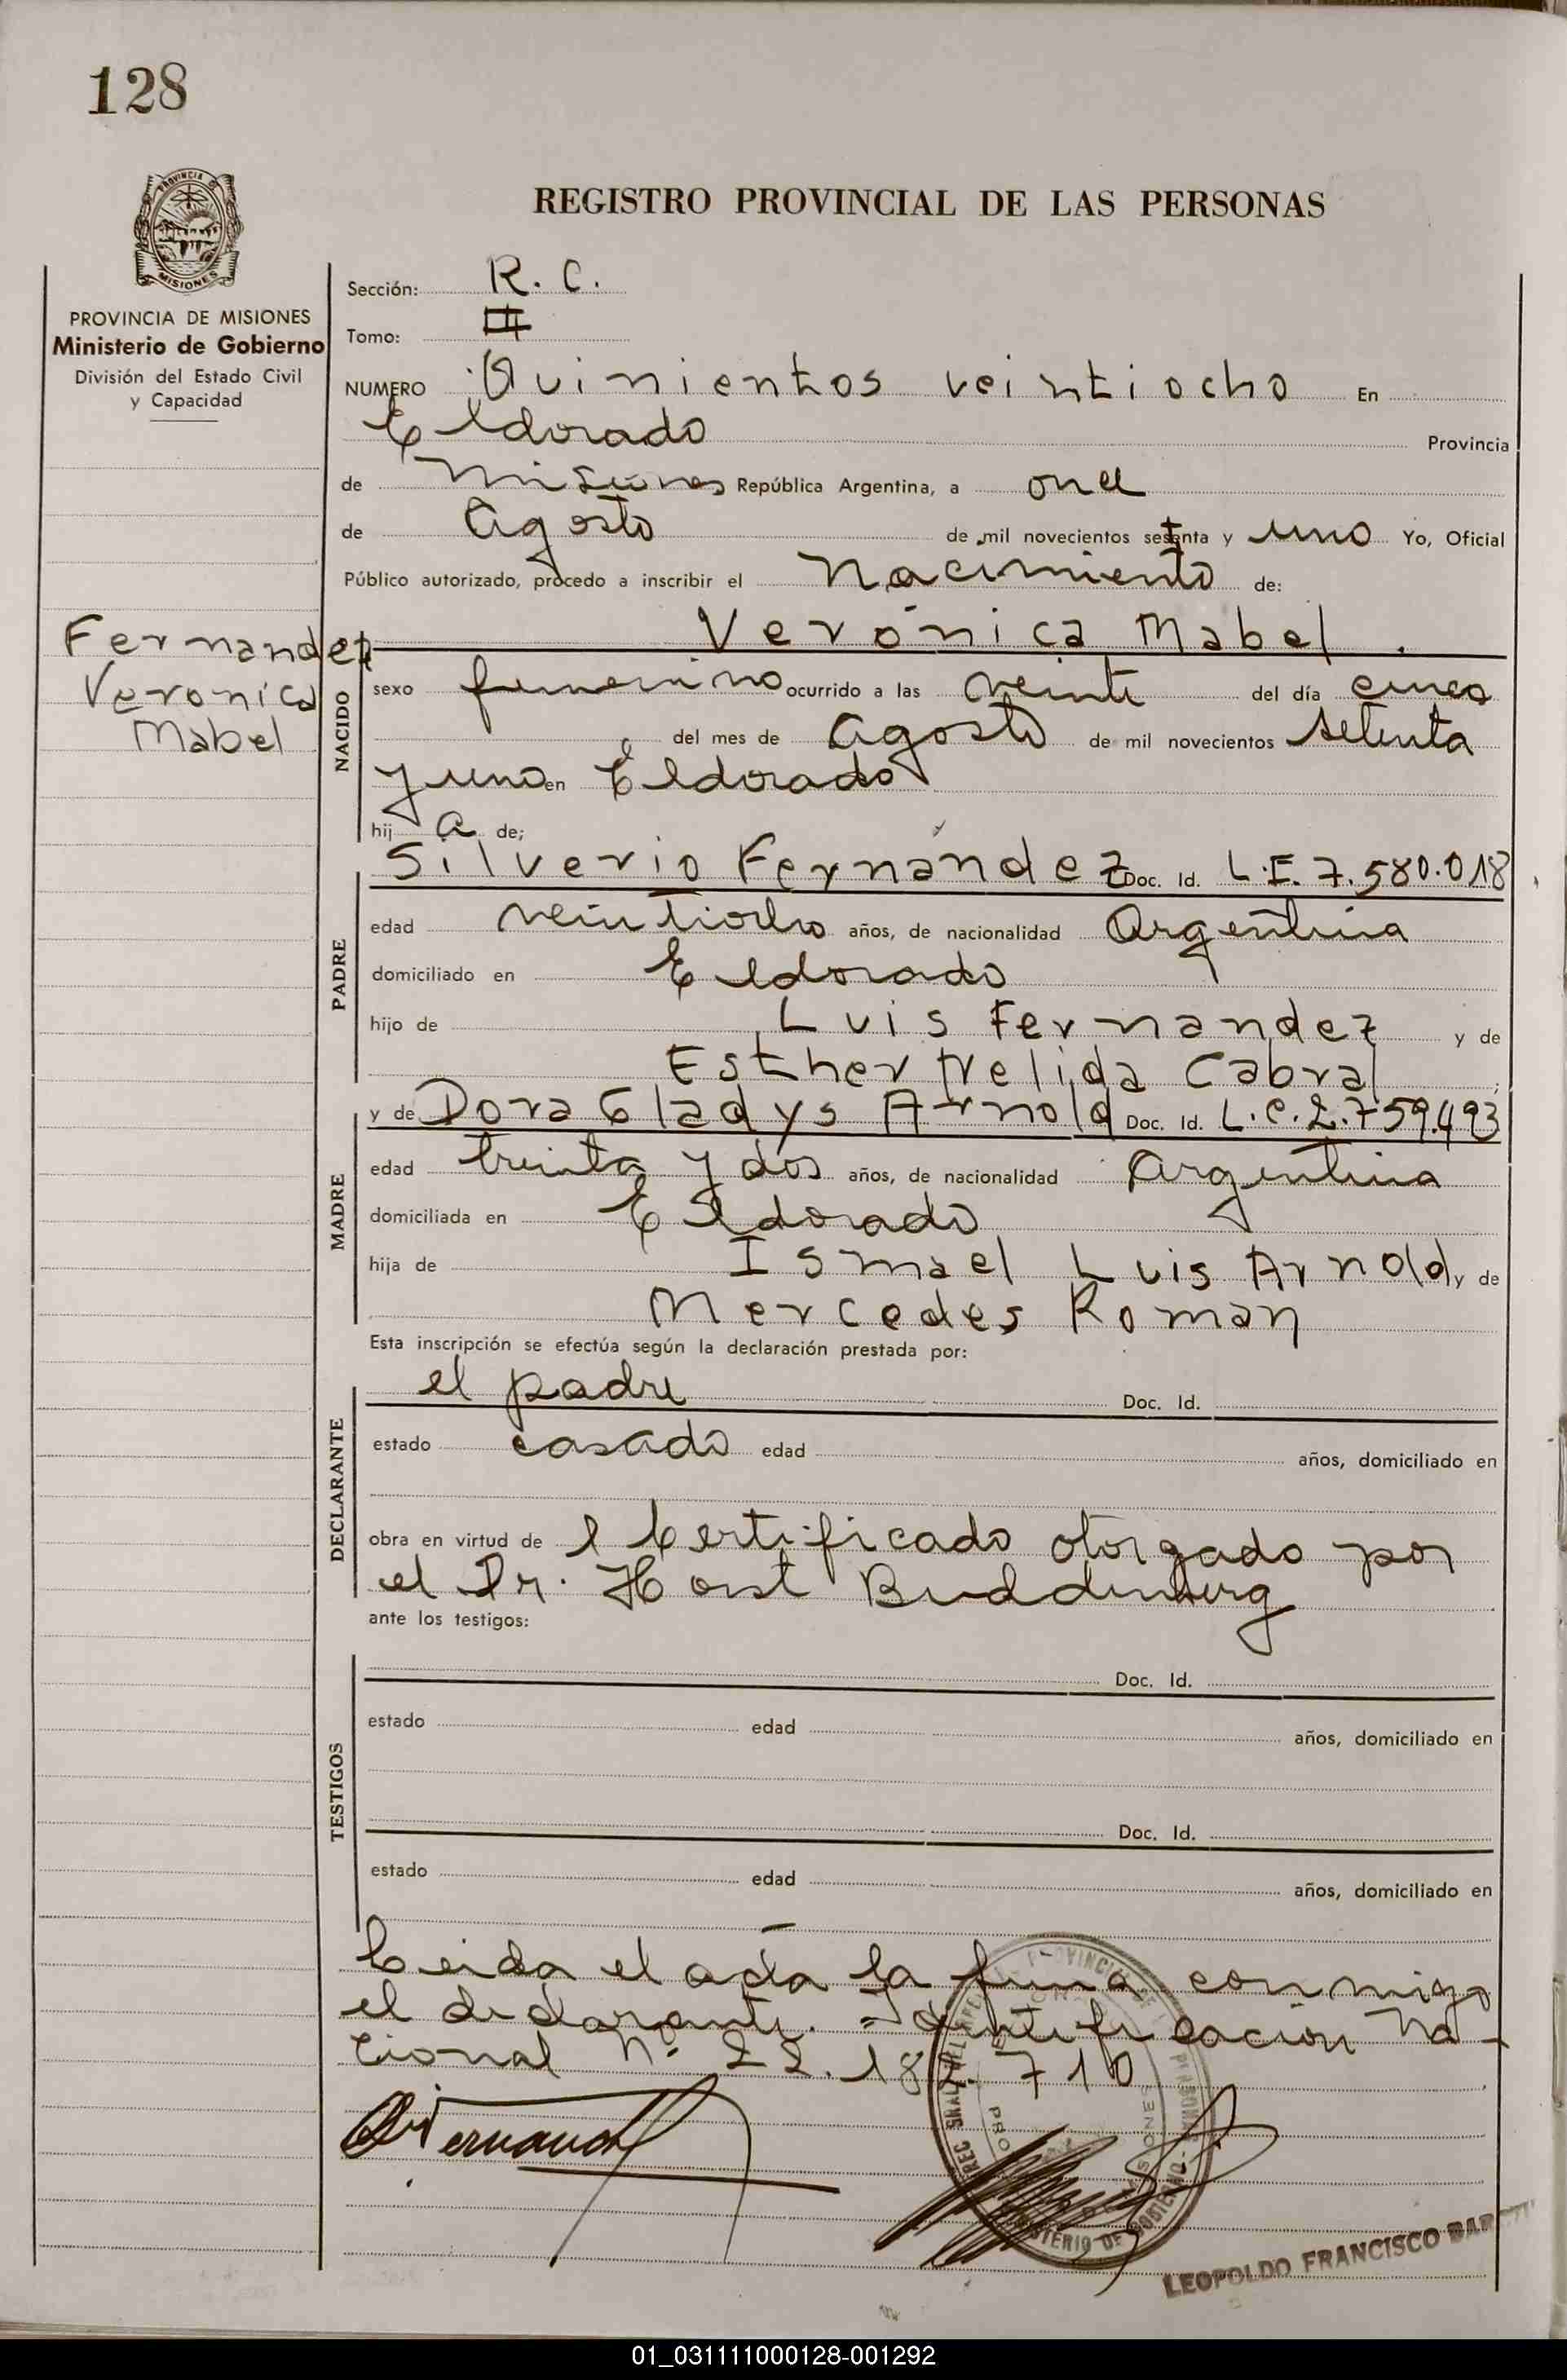 128
PROVINCIA
MISIONES
REGISTRO PROVINCIAL DE LAS PERSONAS
PROVINCIA DE MISIONES
Ministerio de Gobierno
División del Estado Civil
y Capacidad
Fernandez
Veronica
Mabel
Sección: R. C.
Tomo: III
NUMERO Quinientos veintiocho En
Eldorado Provincia
de Misiones República Argentina, a once
de Agosto de mil novecientos setenta y uno Yo, Oficial
Público autorizado, procedo a inscribir el Nacimiento de:
Verónica Mabel.
NACIDO
sexo femenino ocurrido a las veinte del día cinco
del mes de Agosto de mil novecientos setenta
y uno en Eldorado
hij a de;
PADRE
Silverio Fernández Doc. Id. L.E. 7.580.018
edad veintiocho años, de nacionalidad Argentina
domiciliado en Eldorado
hijo de Luis Fernandez y de
Esther Nelida Cabral ;
MADRE
y de Dora Gladys Arnold Doc. Id. L.C. 2.759.493
edad treinta y dos años, de nacionalidad Argentina
domiciliada en Eldorado
hija de Ismael Luis Arnold y de
Mercedes Roman
Esta inscripción se efectúa según la declaración prestada por:
DECLARANTE
el padre Doc. Id.
estado casado edad años, domiciliado en
obra en virtud de l Certificado otorgado por
el Dr. Horst Buddenberg
ante los testigos:
TESTIGOS
Doc. Id.
estado edad años, domiciliado en
Doc. Id.
estado edad años, domiciliado en
Leida el acta la firma conmigo
el declarante. Identificación Na-
cional Nº 22.182.710
MINISTERIO DE GOBIERNO
LEOPOLDO FRANCISCO
01_031111000128-001292